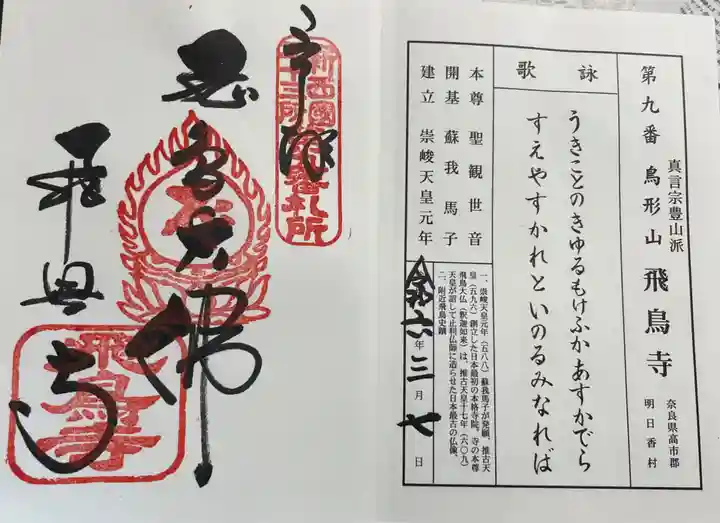 第九番 鳥形山 飛鳥寺
真言宗豊山派
奈良県高市郡
明日香村
詠歌
うきことのきゆるもけふかあすかでら
すえやすかれといのるみなれば
本尊 聖観世音
開基 蘇我馬子
建立 崇峻天皇元年
一、崇峻天皇元年(五八八)蘇我馬子が発願、推古天
皇(五九六)創立した日本最初の本格寺院。寺の本尊
飛鳥大仏(釈迦如来)は、推古天皇十七年(六〇九)
天皇が詔して止利仏師に造らせた日本最古の仏像。
二、附近飛鳥史蹟
令和六年三月七日
奉拝
新西國
三十三所
第九番札所
飛鳥大佛
飛鳥寺
飛鳥寺